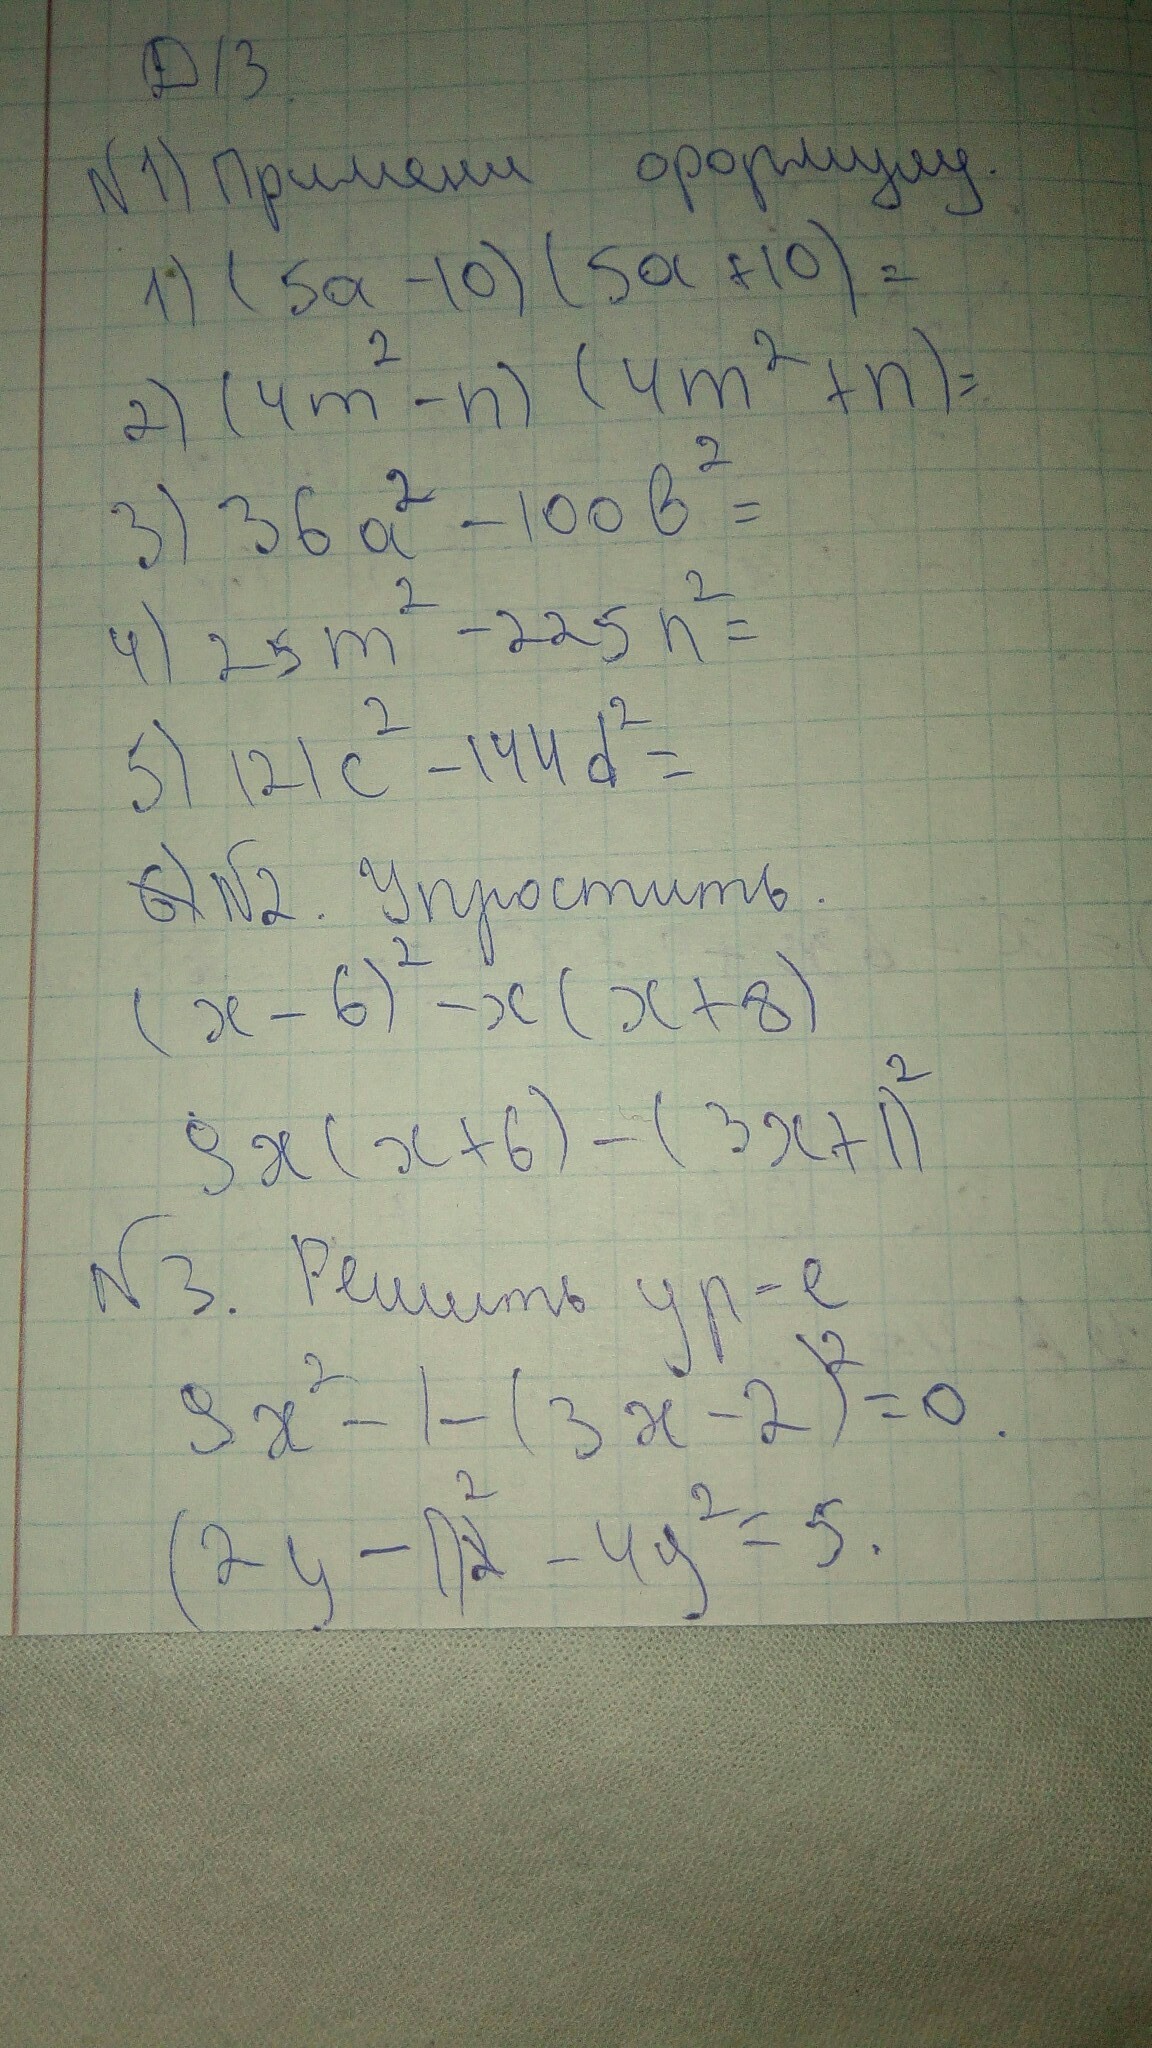 Д/З.
№1) Примени формулу.
1) (5a-10)(5a+10)=
2) (4m²-n) (4m²+n)=
3) 36a²-100b²=
4) 25m²-225n²=
5) 121c²-144d²=
№2. Упростить.
(x-6)²-x(x+8)
9x(x+6)-(3x+1)²
№3. Решить ур-е
9x²-1-(3x-2)²=0.
(2y-1)²-4y²=5.